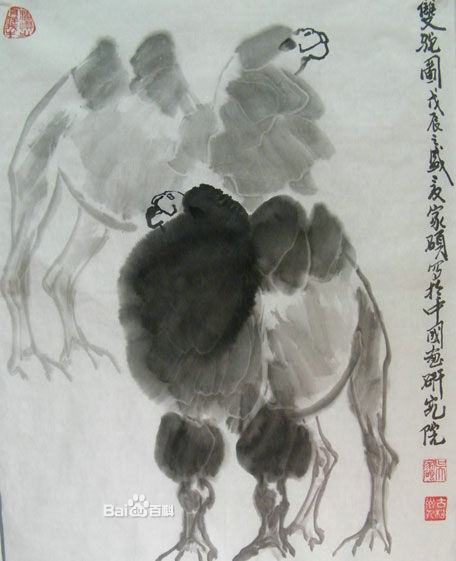 雙駝圖戊辰之盛夏家碩寫於中國畫研究院
Bai百科